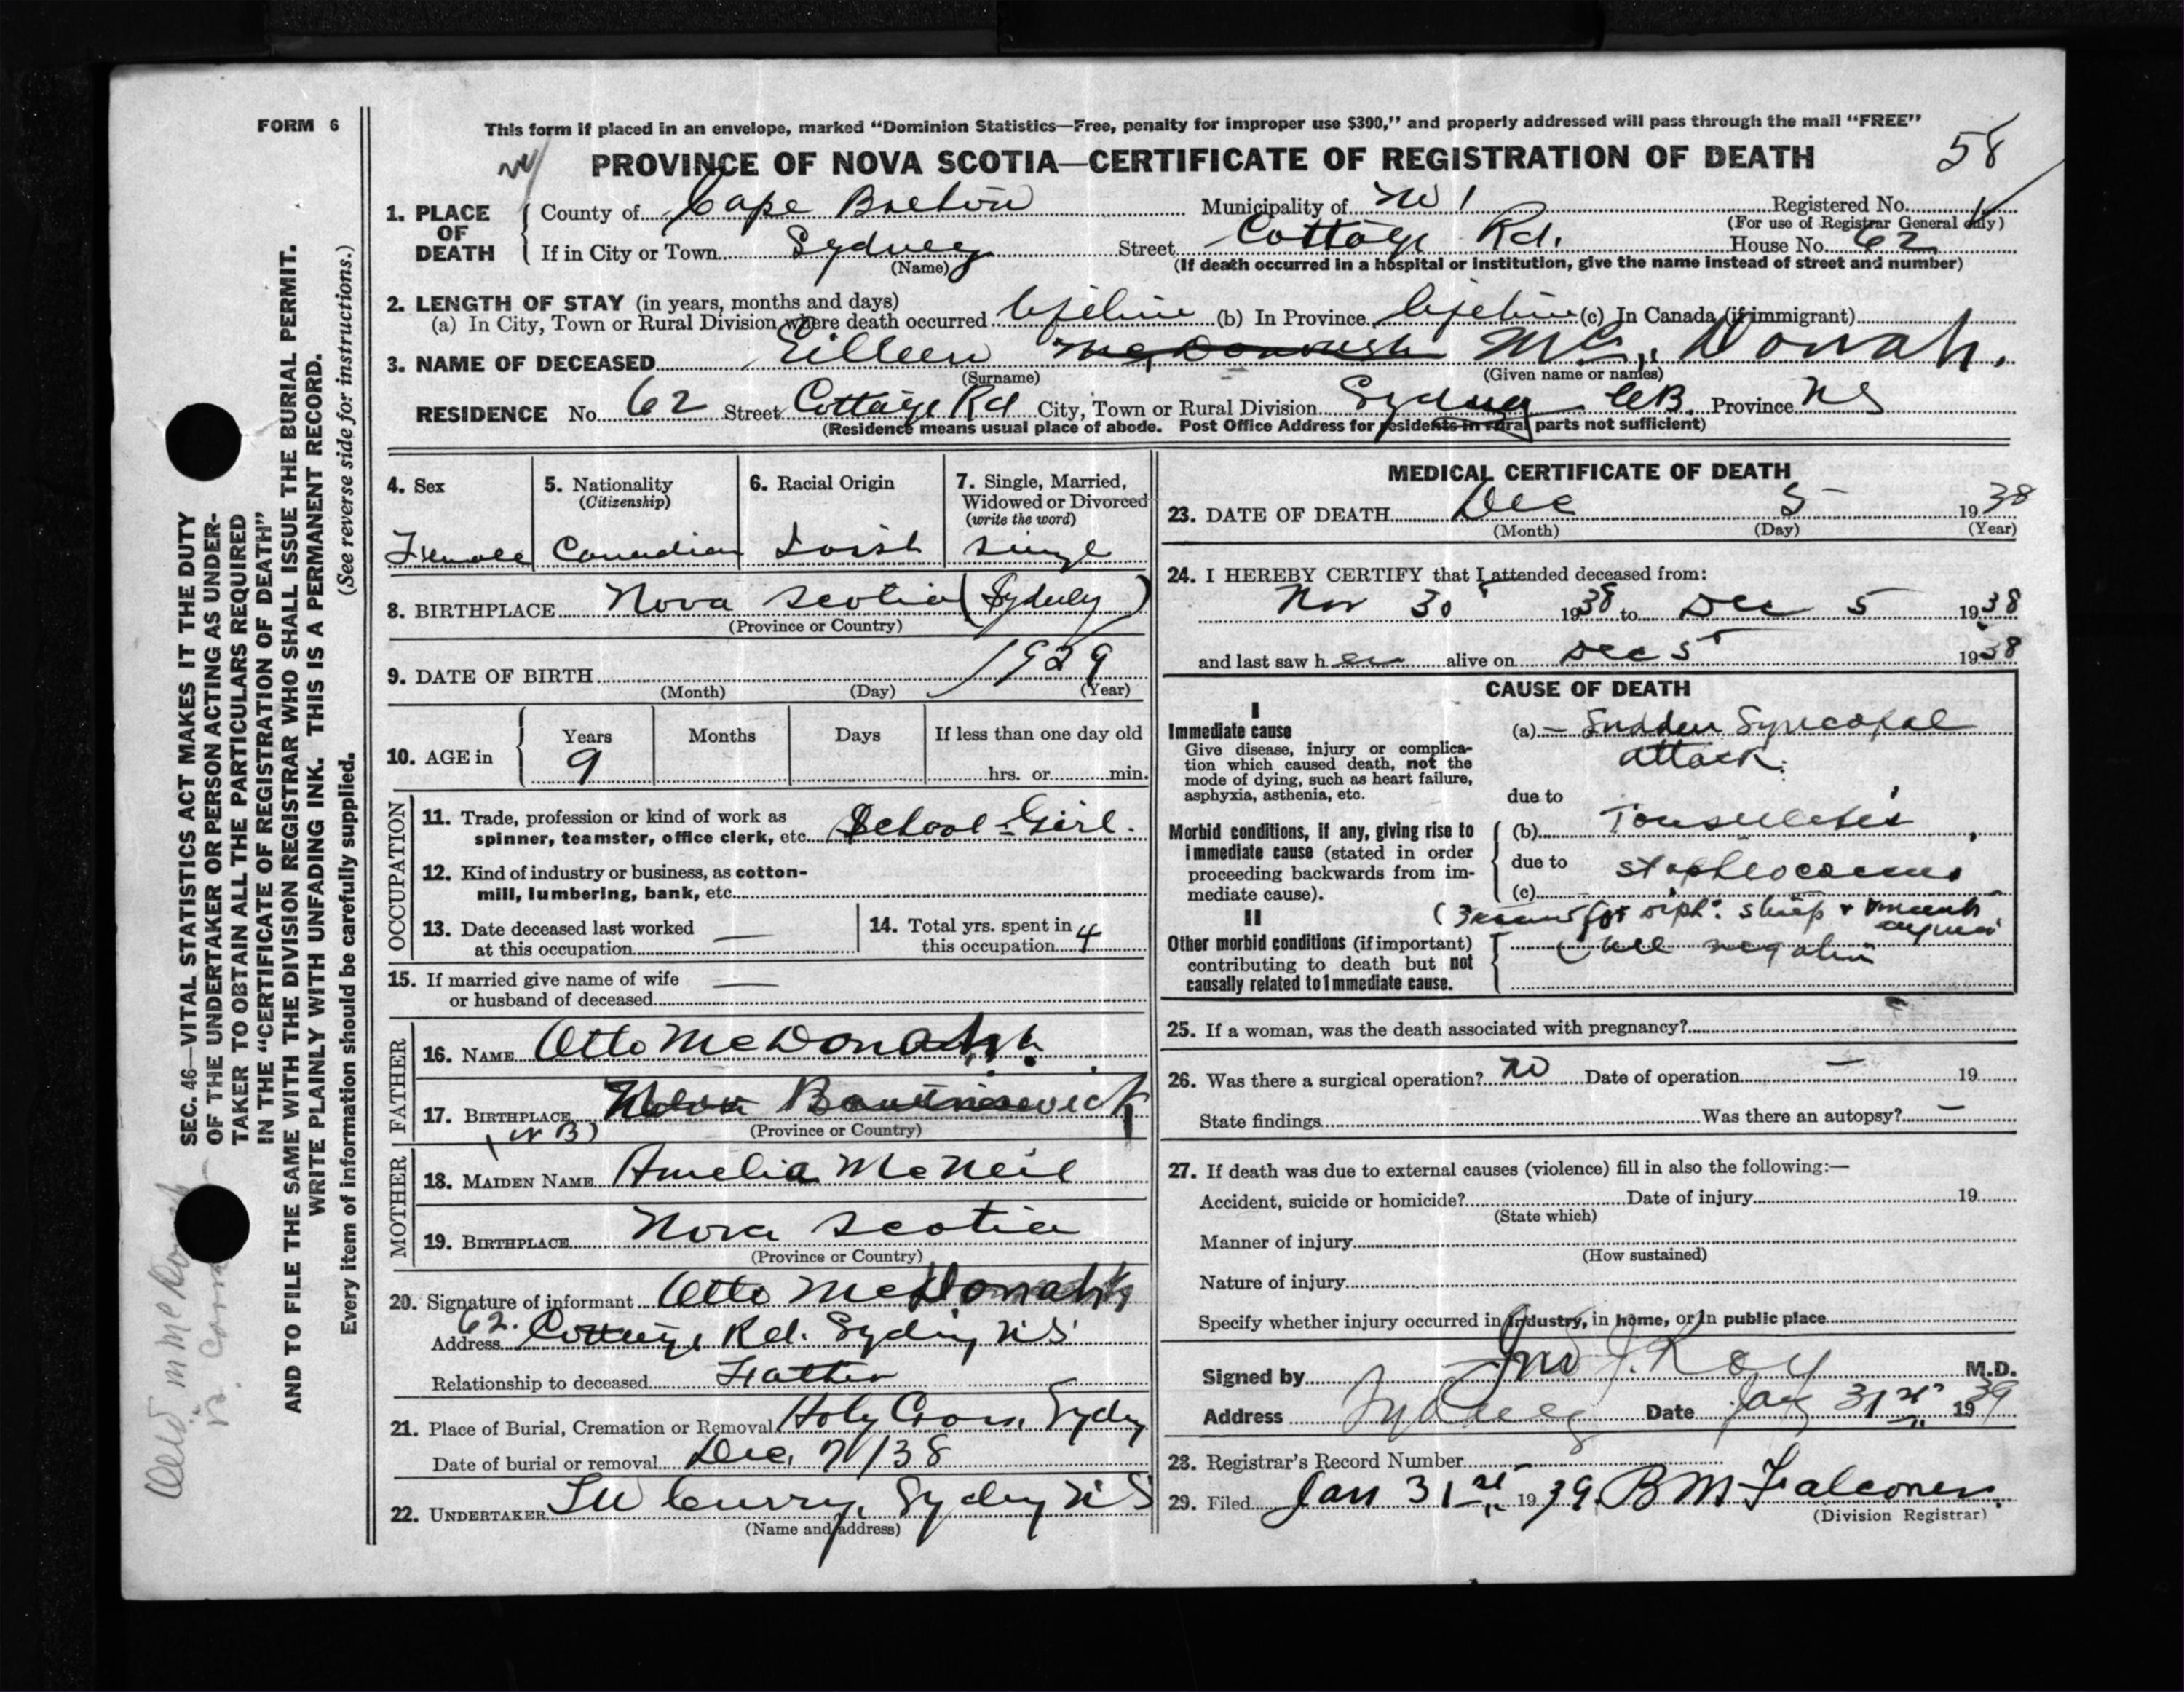 FORM 6
This form if placed in an envelope, marked “Dominion Statistics—Free, penalty for improper use $300,” and properly addressed will pass through the mail “FREE”
58
PROVINCE OF NOVA SCOTIA—CERTIFICATE OF REGISTRATION OF DEATH
1. PLACE OF DEATH
County of Cape Breton Municipality of Registered No.
(For use of Registrar General only)
If in City or Town Sydney Street Cottage Rd. House No. 62
(Name) (If death occurred in a hospital or institution, give the name instead of street and number)
2. LENGTH OF STAY (in years, months and days)
(a) In City, Town or Rural Division where death occurred lifetime (b) In Province lifetime (c) In Canada (if immigrant)
3. NAME OF DECEASED Eilleen McDonough Mc Donah.
(Surname) (Given name or names)
RESIDENCE No. 62 Street Cottage Rd City, Town or Rural Division Sydney CB. Province NS
(Residence means usual place of abode. Post Office Address for residents in rural parts not sufficient)
4. Sex Female
5. Nationality (Citizenship) Canadian
6. Racial Origin Irish
7. Single, Married, Widowed or Divorced (write the word) single
8. BIRTHPLACE Nova Scotia (Sydney)
(Province or Country)
9. DATE OF BIRTH 1929
(Month) (Day) (Year)
10. AGE in Years 9 Months Days If less than one day old
hrs. or min.
OCCUPATION
11. Trade, profession or kind of work as
spinner, teamster, office clerk, etc. School-Girl.
12. Kind of industry or business, as cotton-
mill, lumbering, bank, etc.
13. Date deceased last worked
at this occupation —
14. Total yrs. spent in
this occupation 4
15. If married give name of wife
or husband of deceased —
FATHER
16. NAME Otto McDonah.
17. BIRTHPLACE
(NB) (Province or Country)
MOTHER
18. MAIDEN NAME Amelia McNeil
19. BIRTHPLACE Nova Scotia
(Province or Country)
20. Signature of informant Otto McDonah
Address 62. Cottage Rd. Sydney NS
Relationship to deceased Father
21. Place of Burial, Cremation or Removal Holy Cross, Sydney
Date of burial or removal Dec. 7/38
22. UNDERTAKER Curry, Sydney NS
(Name and address)
MEDICAL CERTIFICATE OF DEATH
23. DATE OF DEATH Dec 5 1938
(Month) (Day) (Year)
24. I HEREBY CERTIFY that I attended deceased from:
Nov 30 1938 to Dec 5 1938
and last saw her alive on Dec 5 1938
CAUSE OF DEATH
I
Immediate cause
Give disease, injury or complica-
tion which caused death, not the
mode of dying, such as heart failure,
asphyxia, asthenia, etc.
(a) — Sudden Syncopal
attack.
due to
Morbid conditions, if any, giving rise to
immediate cause (stated in order
proceeding backwards from im-
mediate cause).
(b) Tonsillitis
due to
(c) staphlococcus
II
Other morbid conditions (if important)
contributing to death but not
causally related to immediate cause.
for diph. strep +
(all negative
25. If a woman, was the death associated with pregnancy?
26. Was there a surgical operation? no Date of operation — 19
State findings Was there an autopsy? —
27. If death was due to external causes (violence) fill in also the following:—
Accident, suicide or homicide? Date of injury 19
(State which)
Manner of injury
(How sustained)
Nature of injury
Specify whether injury occurred in industry, in home, or in public place
Signed by Jno J. Roy M.D.
Address Sydney Date Jany 31st 1939
28. Registrar's Record Number
29. Filed Jan 31st 1939. B M Falconer.
(Division Registrar)
SEC. 46—VITAL STATISTICS ACT MAKES IT THE DUTY
OF THE UNDERTAKER OR PERSON ACTING AS UNDER-
TAKER TO OBTAIN ALL THE PARTICULARS REQUIRED
IN THE “CERTIFICATE OF REGISTRATION OF DEATH”
AND TO FILE THE SAME WITH THE DIVISION REGISTRAR WHO SHALL ISSUE THE BURIAL PERMIT.
WRITE PLAINLY WITH UNFADING INK. THIS IS A PERMANENT RECORD.
Every item of information should be carefully supplied. (See reverse side for instructions.)